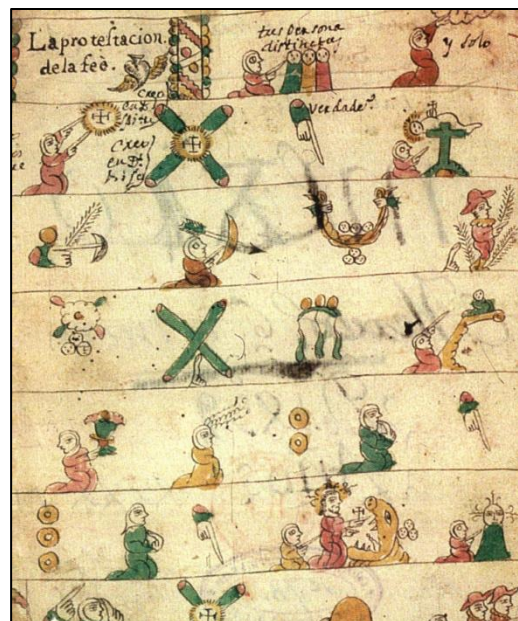 La protestacion.
de la feè.
tres Persona
distinctas
y solo
Creo
en D.
hijo
Verdade.º